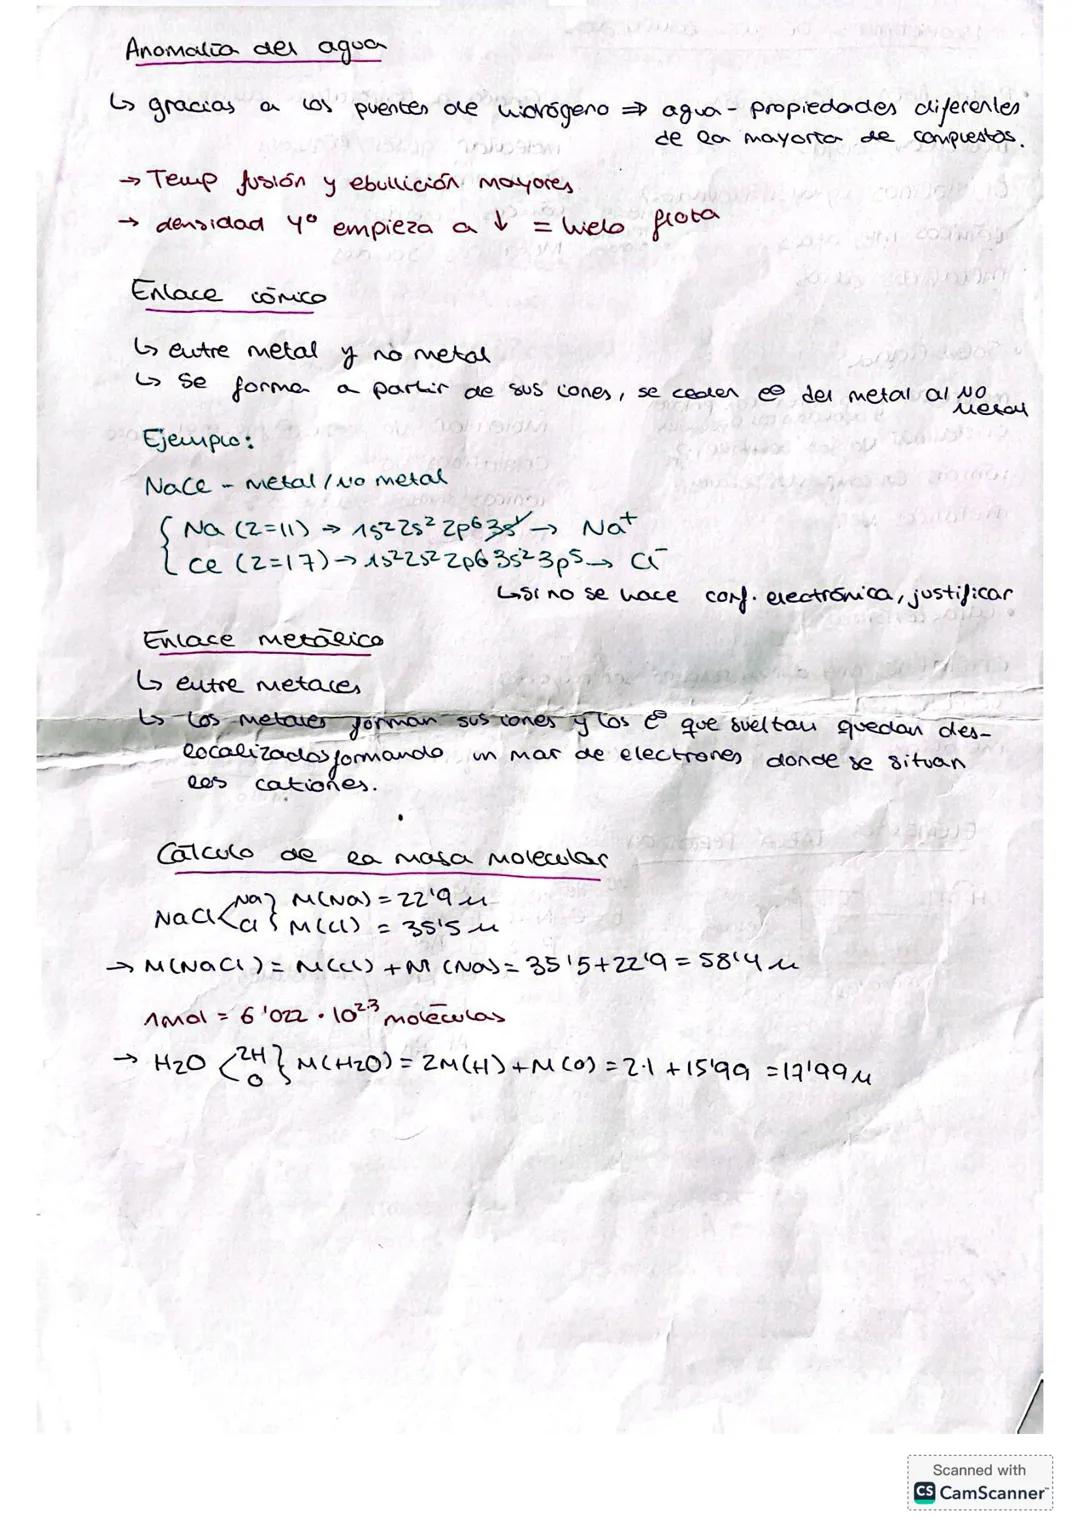 Anomalía del agua
↳ gracias a los puentes de hidrógeno ⇒ agua - propiedades diferentes
de la mayoría de compuestos.
→ Temp fusión y ebullición mayores
→ densidad 4º empieza a ↓ = hielo flota
Enlace iónico
↳ entre metal y no metal
↳ Se forma a partir de sus iones, se ceden e⊖ del metal al NO
metal
Ejemplo:
NaCl - metal / No metal
{ Na (Z=11) → 1s² 2s² 2p⁶ 3s¹ → Na⁺
Cl (Z=17) → 1s² 2s² 2p⁶ 3s² 3p⁵ → Cl⁻
↳ si no se hace conf. electrónica, justificar
Enlace metálico
↳ entre metales
↳ Los metales forman sus iones y los e⊖ que sueltan quedan des-
localizados formando un mar de electrones donde se situan
los cationes.
Cálculo de la masa molecular
NaCl < Na } M(Na) = 22'9 u
Cl } M(Cl) = 35'5 u
→ M(NaCl) = M(Cl) + M(Na) = 35'5 + 22'9 = 58'4 u
1mol = 6'022 · 10²³ moléculas
→ H2O < 2H } M(H2O) = 2M(H) + M(O) = 2·1 + 15'99 = 17'99 u
O
Scanned with
CS CamScanner